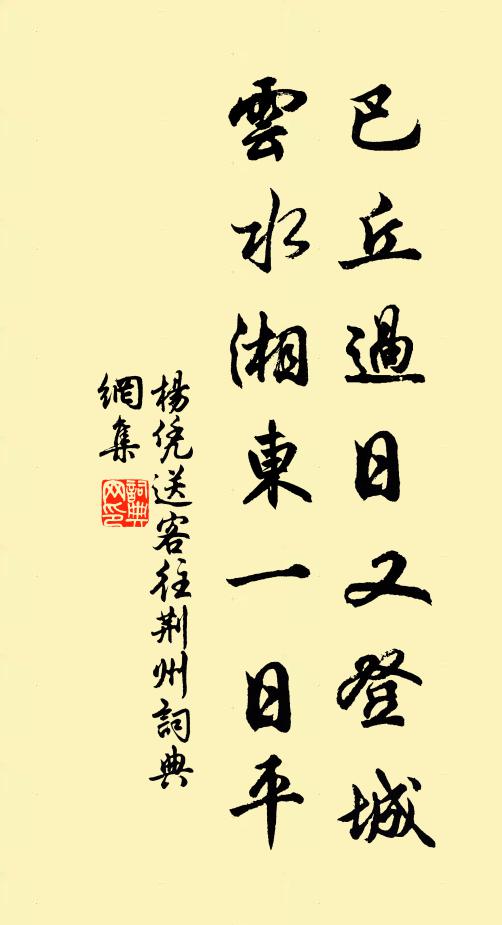 巴丘過日又登城
雲水湘東一日平
楊凭送客往荆州詞典
網集
詞典網印